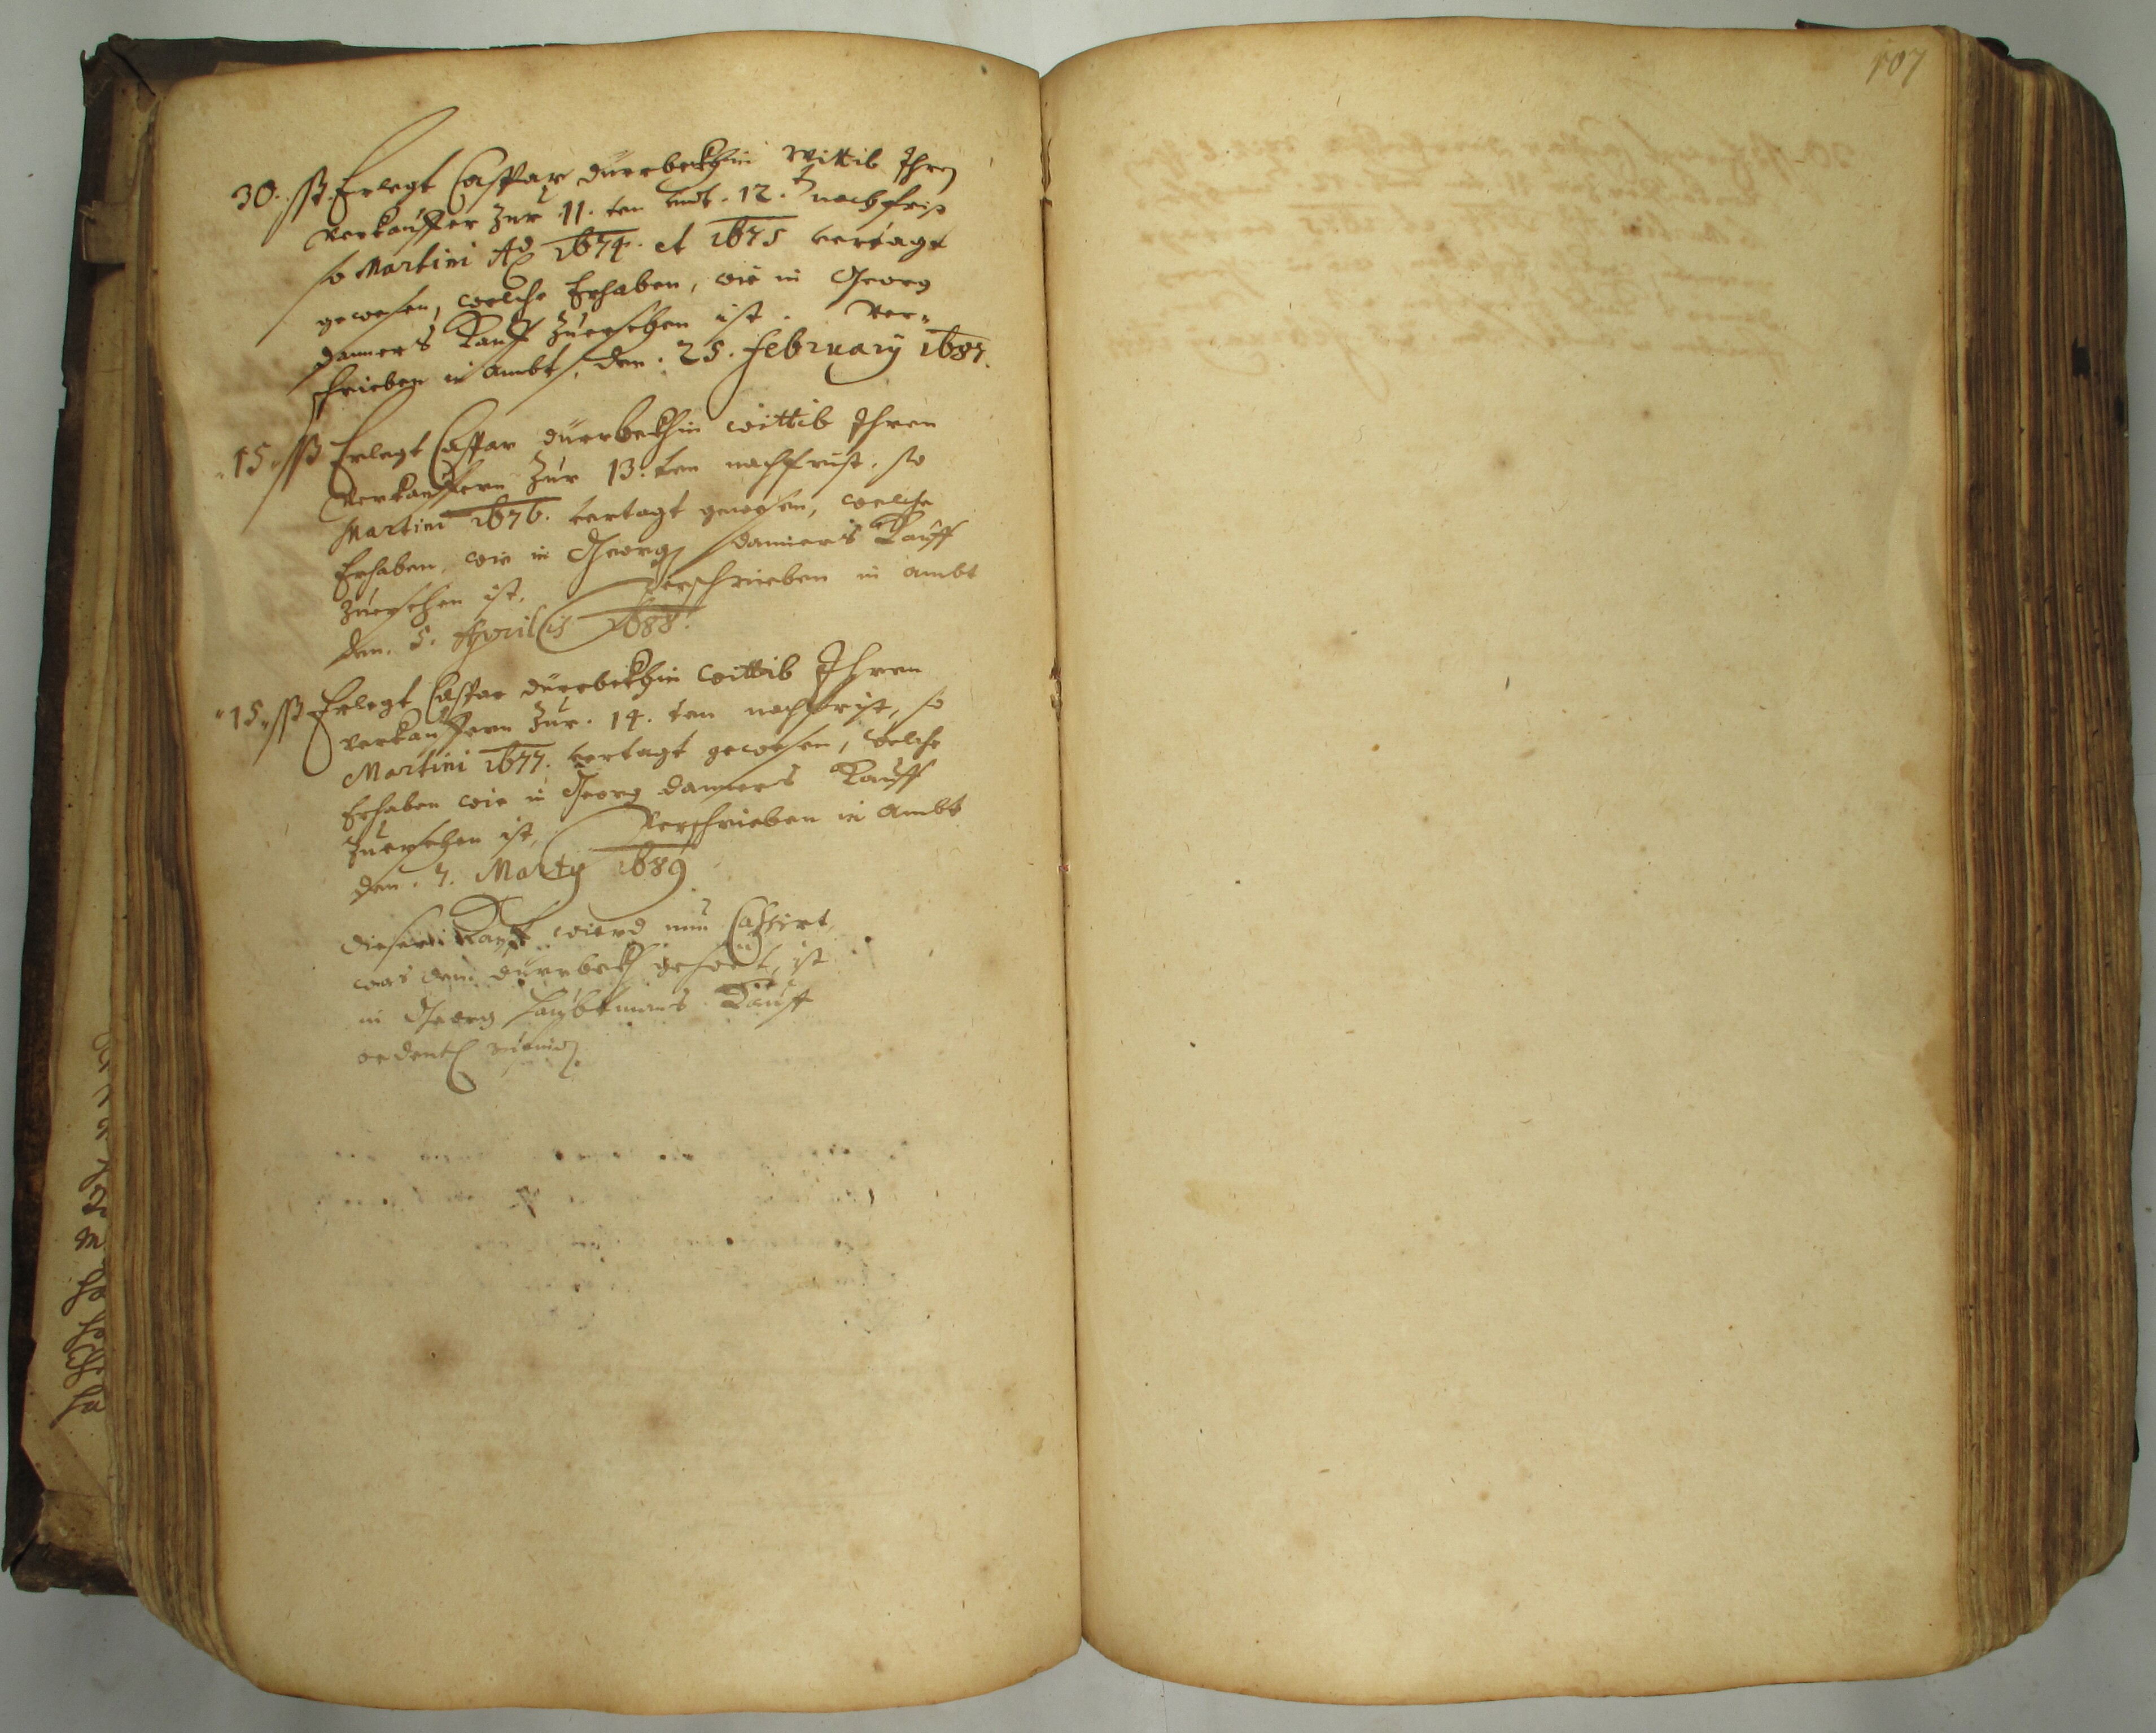 107
30. ßß. Erlegt Caspar dürrbeckhin Wittib Ihren
Verkauffer zur 11. ten undt. 12. t nachfrist
so Martini Ao 1674. et 1675 vertagt
gewesen, welche Erhaben, wie in Georg
danners Kauff zuersehen ist. Ver„
schrieben in Ambt, den. 25. february 1687.
„15„ ßß Erlegt Caspar dürrbekhin wittib Ihren
Verkauffern Zur 13. ten nachfrist, so
Martini 1676. vertagt gewesen, welche
Erhaben, wie in Georg danners Kauff
zuersehen ist. Verschrieben in Ambt
den. 5. Aprilis 1688.
„15„ ßß Erlegt Caspar dürrbekhin wittib Ihren
Verkauffern Zur. 14. ten nachfrist, so
Martini 1677. vertagt gewesen, welche
Erhaben wie in Georg danners Kauff
Zuersehen ist, Verschrieben in Ambt
den. 7. Marty 1689
dieser Kauff wierd nun Cassirt,
was dem dürrbekh gehört, ist
in Georg Kauff
ordentl